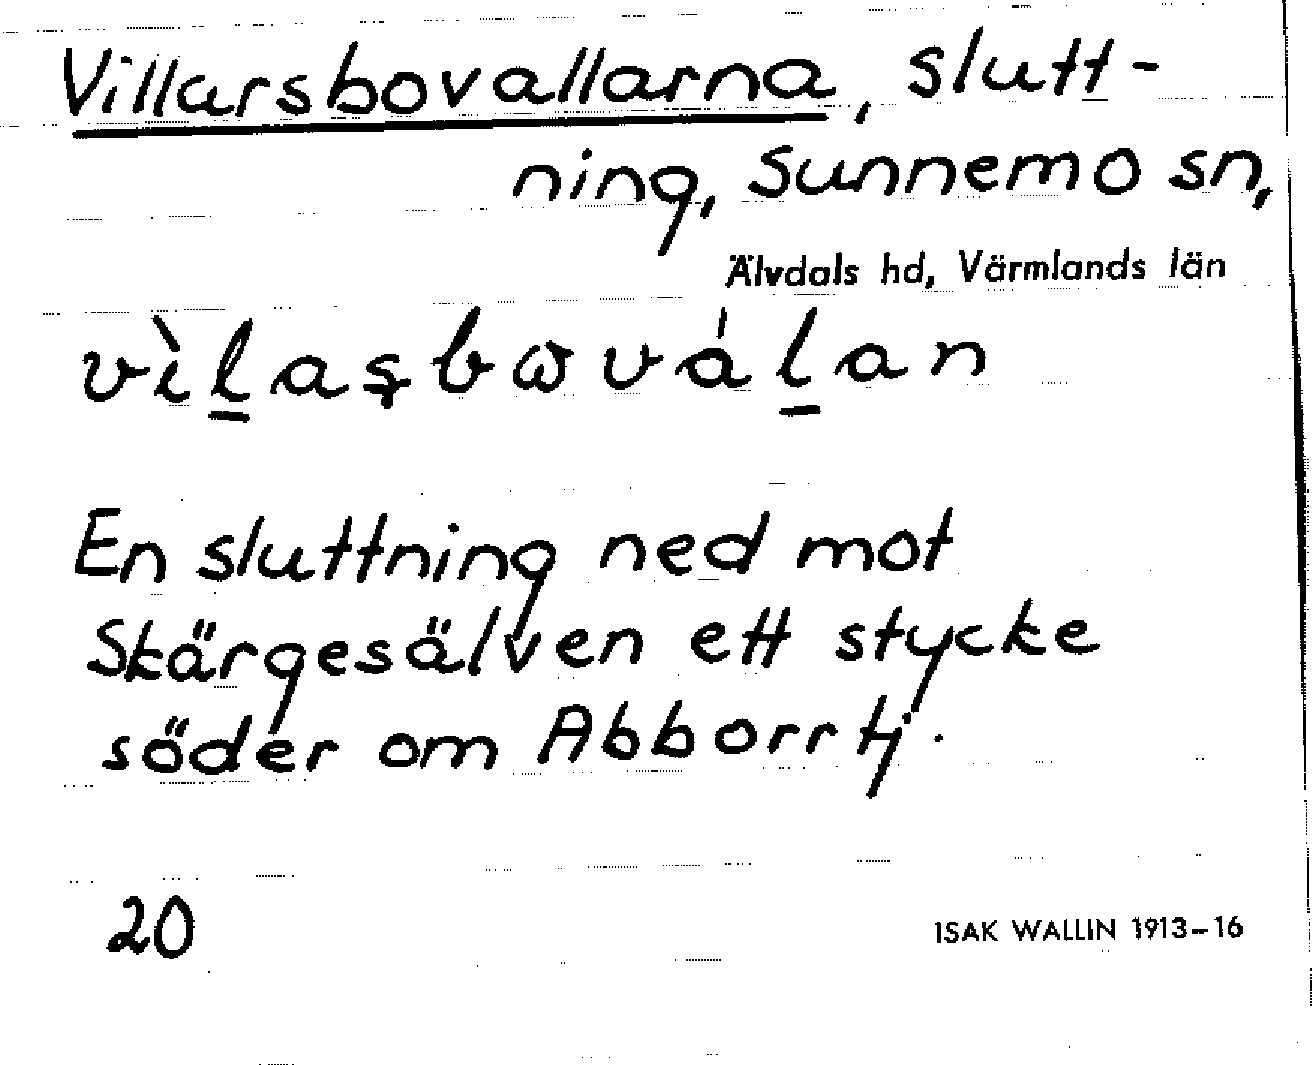 Villarsbovallarna, slutt-
ning, Sunnemo sn,
Älvdals hd, Värmlands län
vìl̲aşbωvál̲an
En sluttning ned mot
Skärgesälven ett stycke
söder om Abborrtj.
20
ISAK WALLIN 1913-16